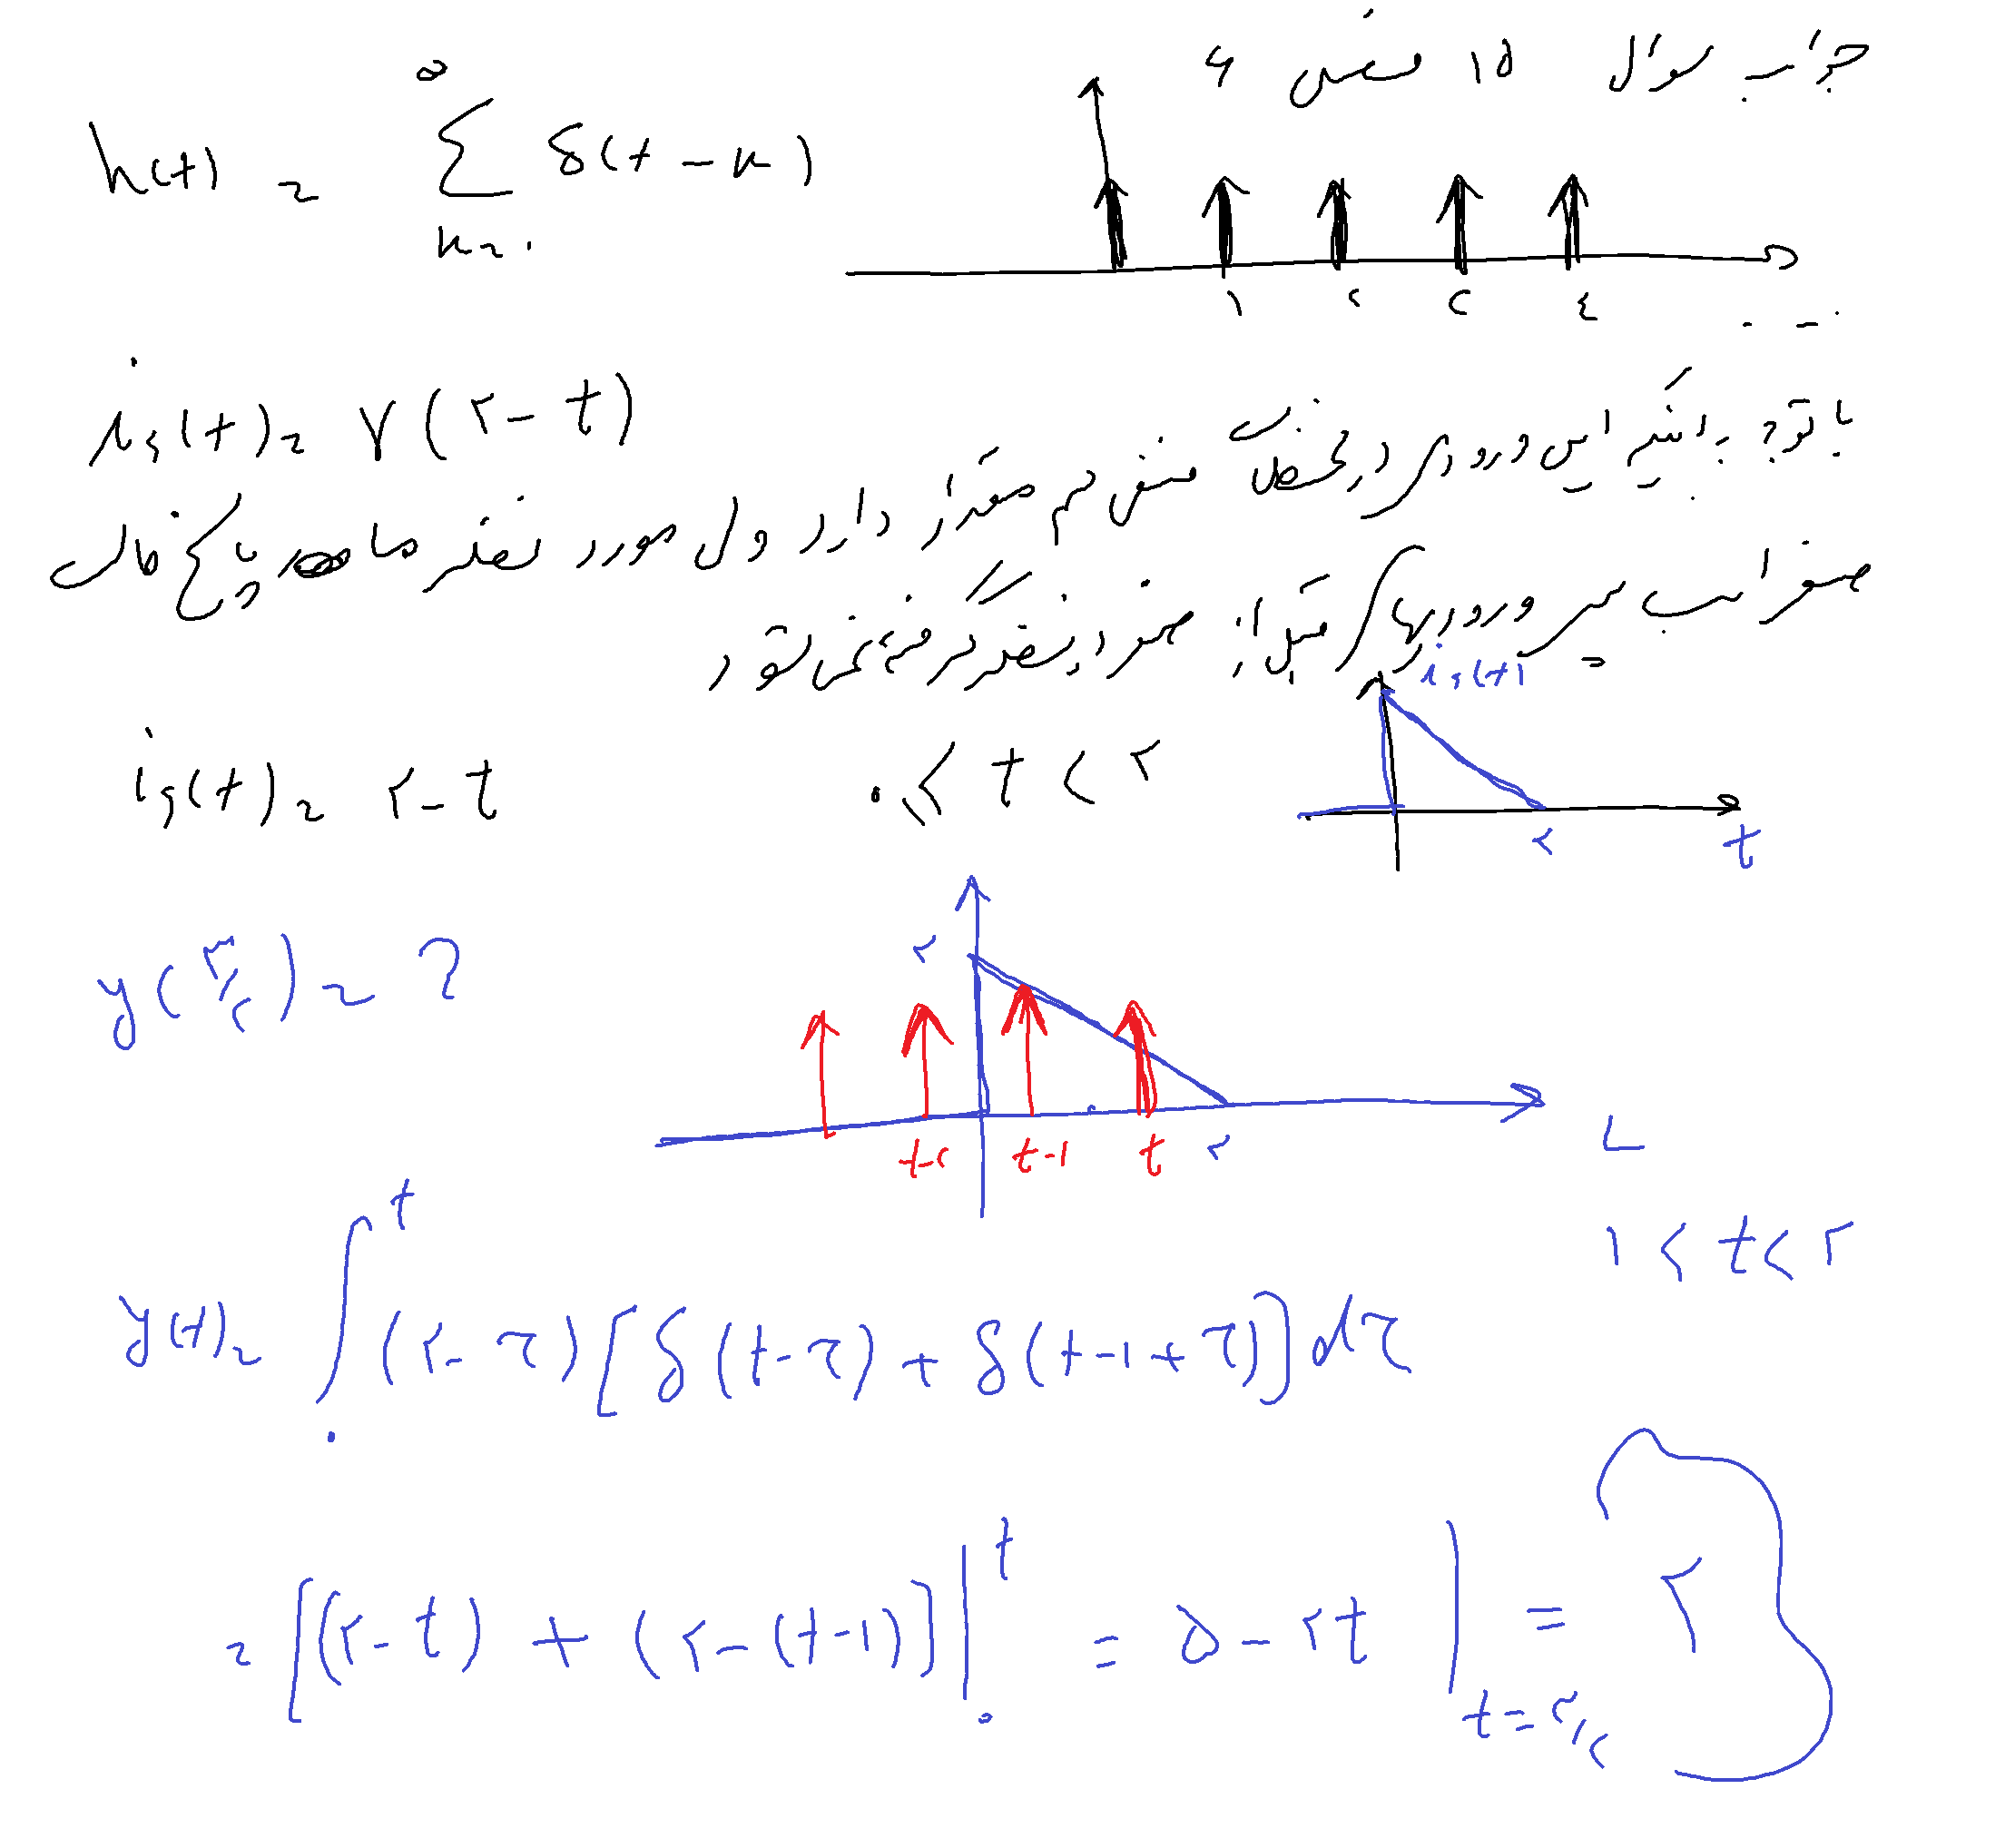 جواب سوال ۱۵ فصل ۶
h(t) = ∑_{n=۰}^{∞} δ(t - n)
۱ ۲ ۳ ۴ ...
i_s(t) = r(۲ - t)
با توجه به اینکه این ورودی در لحظات منفی هم مقدار دارد ولی مورد نظر ما پاسخ حالت
صفر است پس ورودیهای قبل از صفر در نظر گرفته نمی شود
i_s(t)
i_s(t) = ۲ - t ۰ ≤ t < ۲
۲ t
y(۳/۲) = ?
۲
t-۲ t-۱ t ۲
۱ < t < ۲
y(t) = ∫_۰^t (۲ - τ)[δ(t - τ) + δ(t - ۱ + τ)]dτ
= [(۲ - t) + (۲ - (t - ۱)]|_۰^t = ۵ - ۲t |_{t = ۳/۲} = ۲